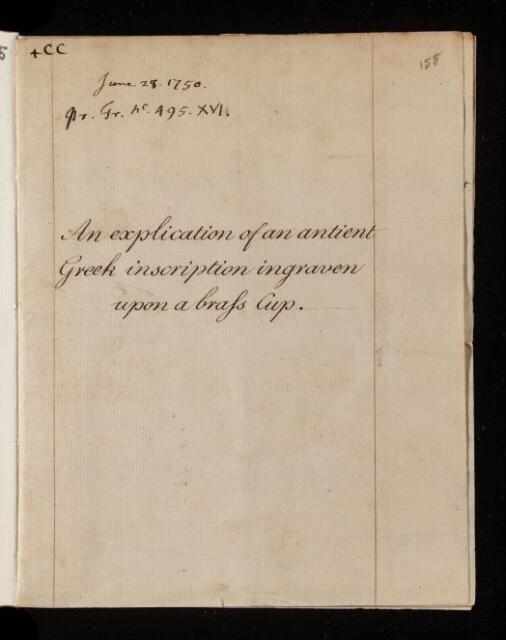 +CC
155
June 28. 1750.
Pr. Gr. N<sup>o</sup>. 495. XVI.
An explication of an antient
Greek inscription ingraven
upon a braſs Cup.